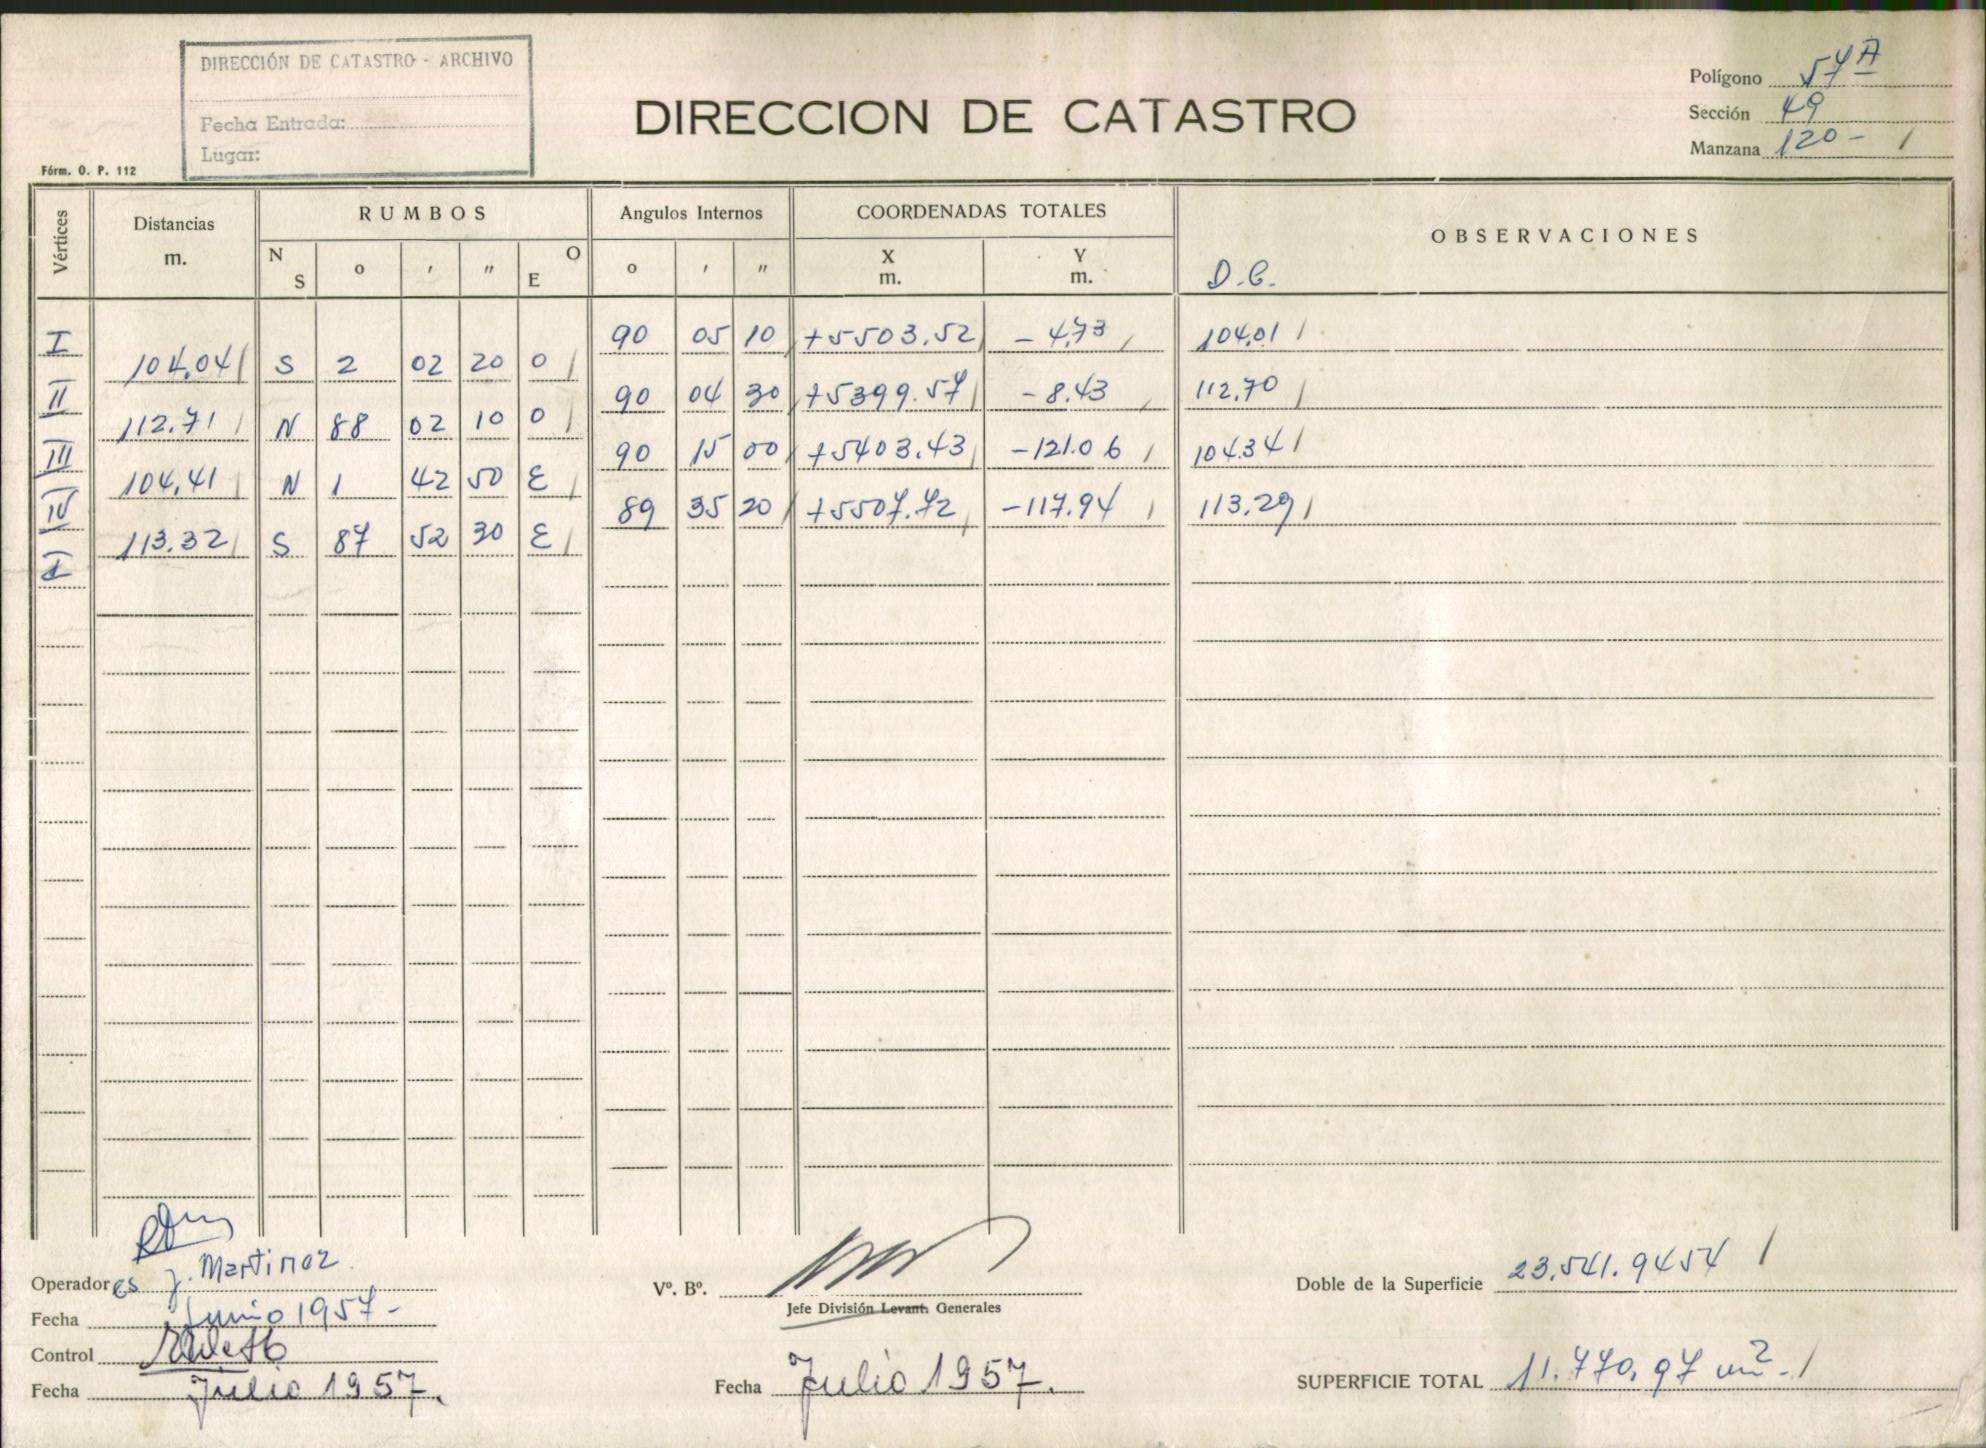 DIRECCIÓN DE CATASTRO - ARCHIVO
Fecha Entrada:
Lugar:
Fórm. O. P. 112
DIRECCION DE CATASTRO
Polígono 57A
Sección 49
Manzana 120 -
Vértices
Distancias
m.
RUMBOS
N S o ' " E O
Angulos Internos
o ' "
COORDENADAS TOTALES
X
m.
Y
m.
OBSERVACIONES
D.C.
I 90 05 10 +5503.52 -4,73 104,01
104,04 S 2 02 20 O
II 90 04 30 +5399.57 -8.43 112,70
112.71 N 88 02 10 O
III 90 15 00 +5403.43 -121.06 104.34
104,41 N 1 42 50 E
IV 89 35 20 +5507.72 -117.94 113.29
113.32 S 87 52 30 E
I
Operadores J. Martinez
Fecha Junio 1957-
Control
Fecha Julio 1957.
Vº. Bº.
Jefe División Levant. Generales
Fecha Julio 1957.
Doble de la Superficie 23.541.9454
SUPERFICIE TOTAL 11.770,97 m2.